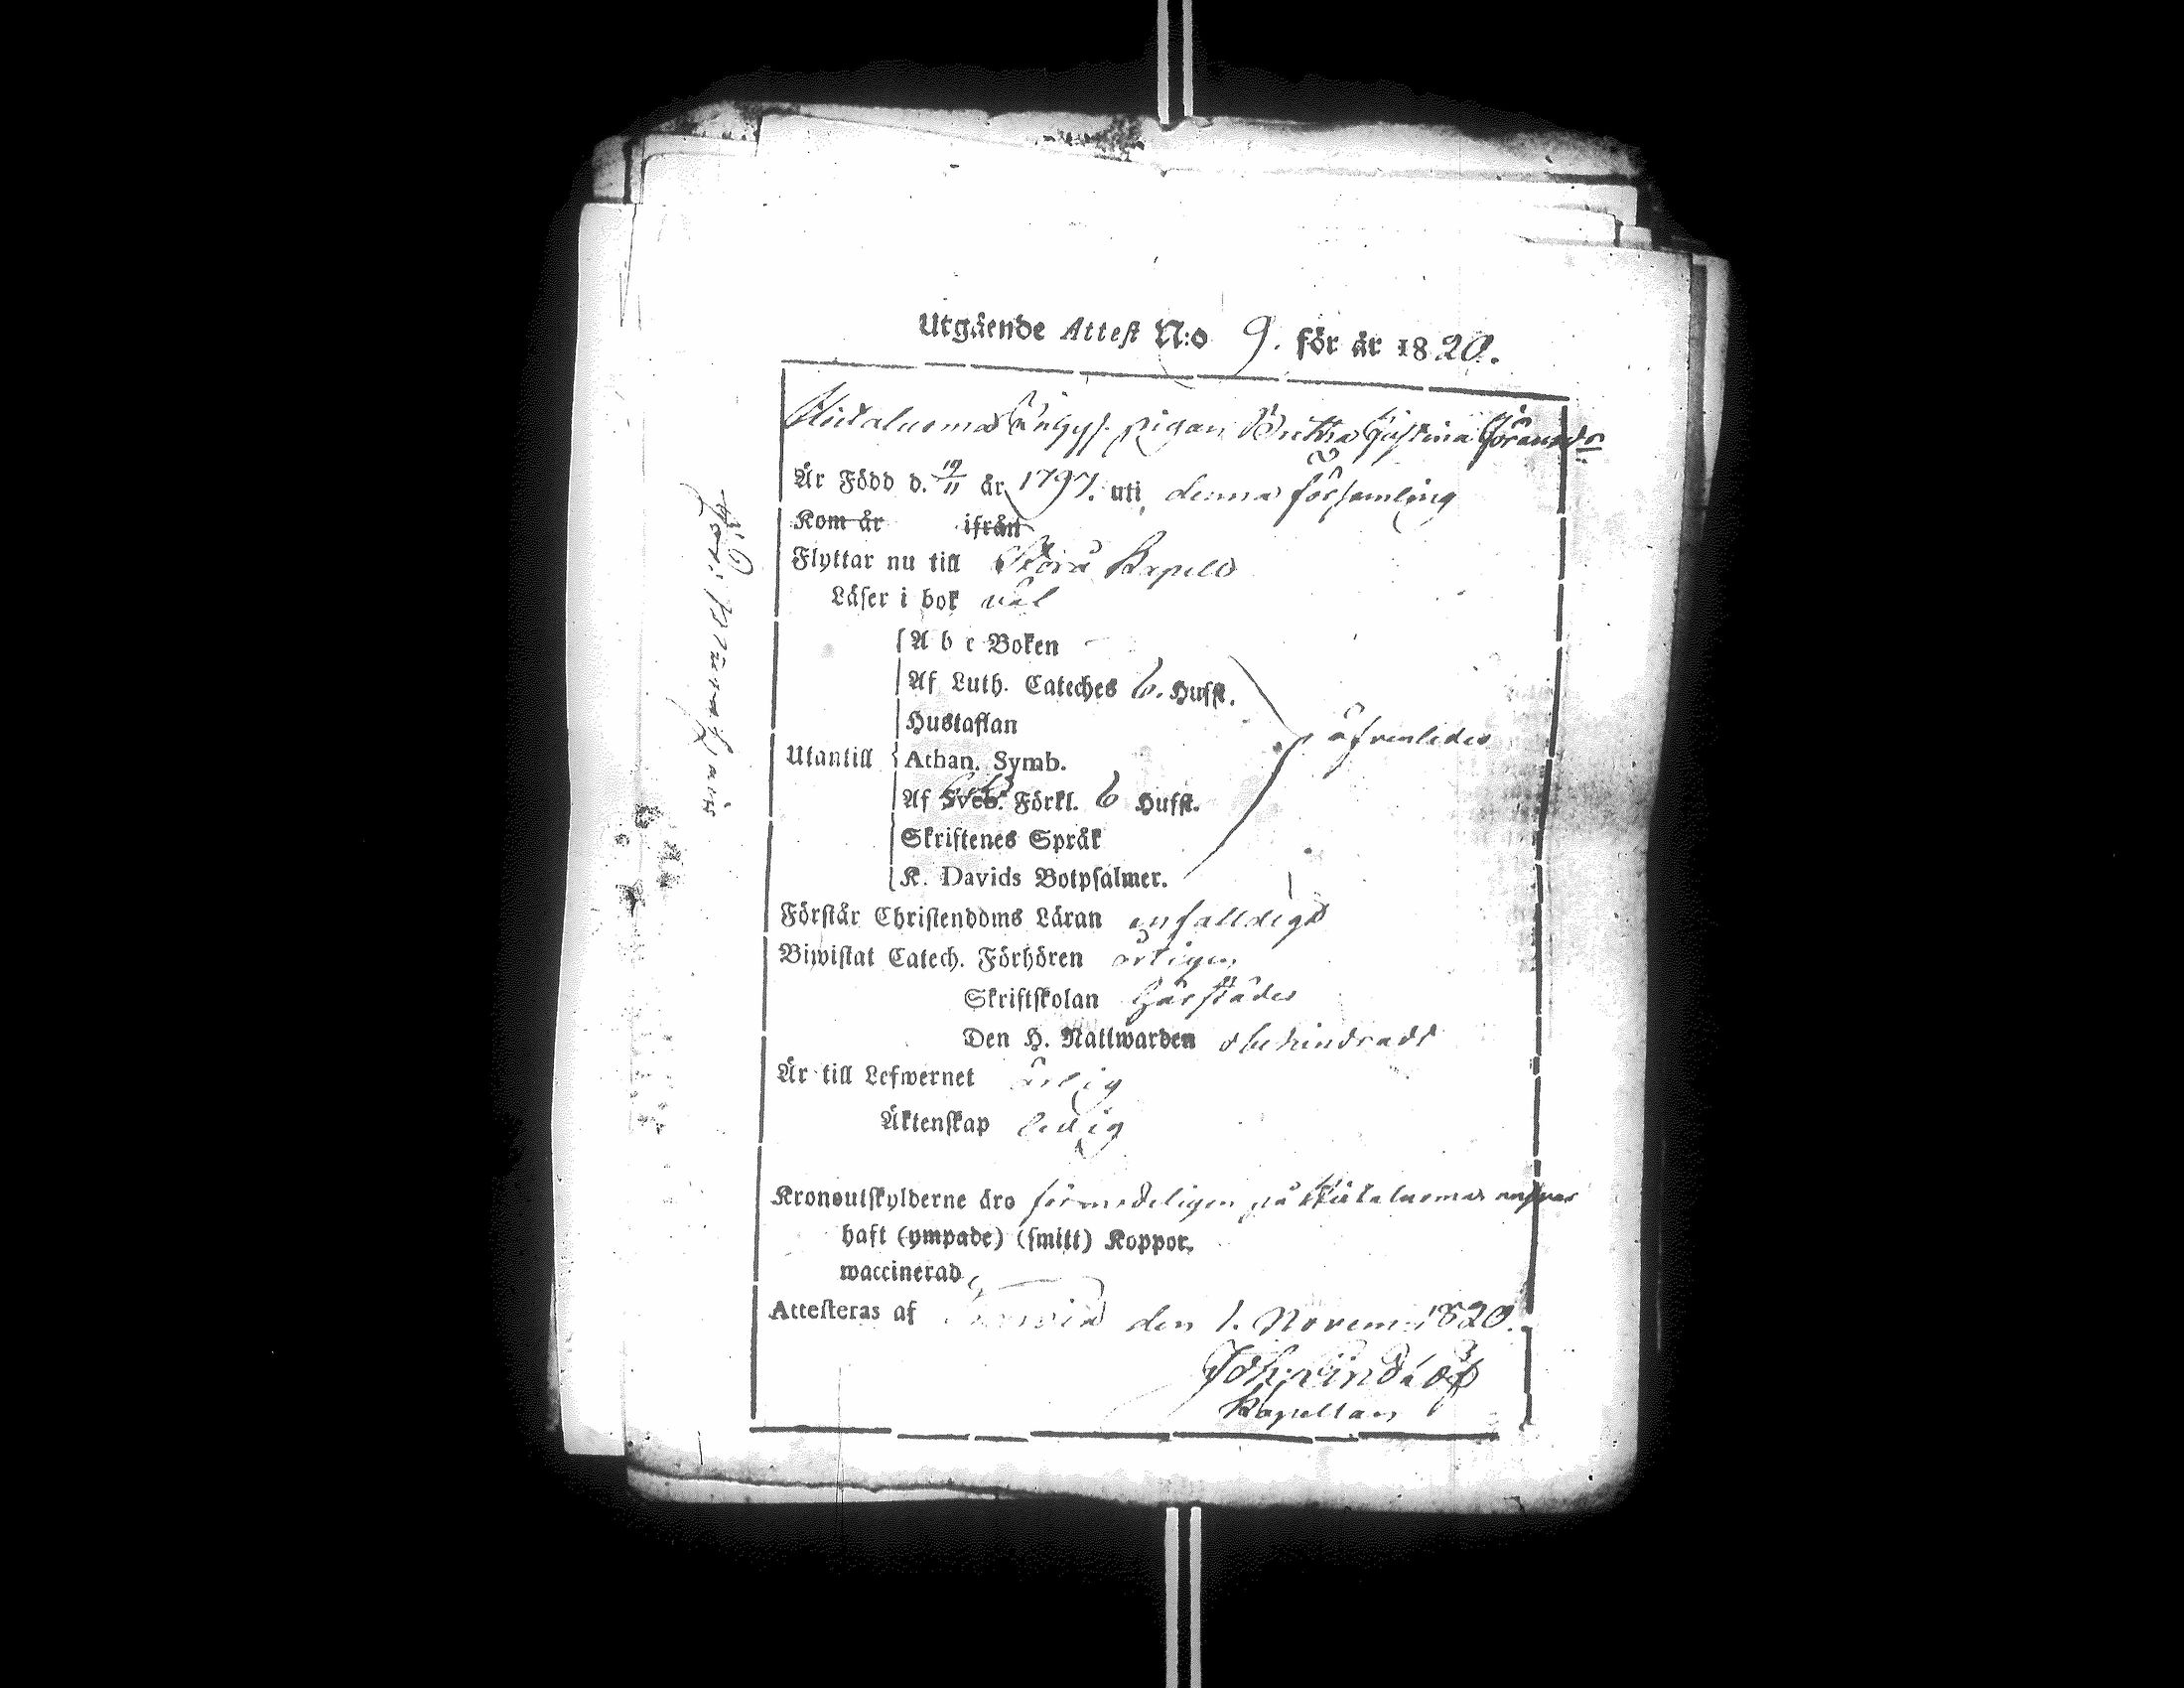 Utgående Attest N:o 9. för år 1820.
pigan Brita Justina Göransdr
Är Född d. 19/11 år 1797. uti denna församling
Kom år ifrån
Flyttar nu till Storå Kapell
Läser i bok väl
A b c Boken
Af Luth. Cateches 6. Hufst.
Hustaflan
Utantill Athan. Symb. äfvenledes
Af Sveb. Förkl. 6 Hufst.
Skriftenes Språk
K. Davids Botpsalmer.
Förstår Christendoms Läran enfalldigt
Biwistat Catech. Förhören årligen
Skriftskolan härstädes
Den H. Nattwarden obehindradt
Är till Lefwernet ärlig
Äktenskap ledig
Kronoutskylderne äro förmodeligen på ansvar
haft (ympade) (smitt) Koppor.
waccinerad
Attesteras af den 1. Novem. 1820.
Joh. Lindlöf
Kapellan